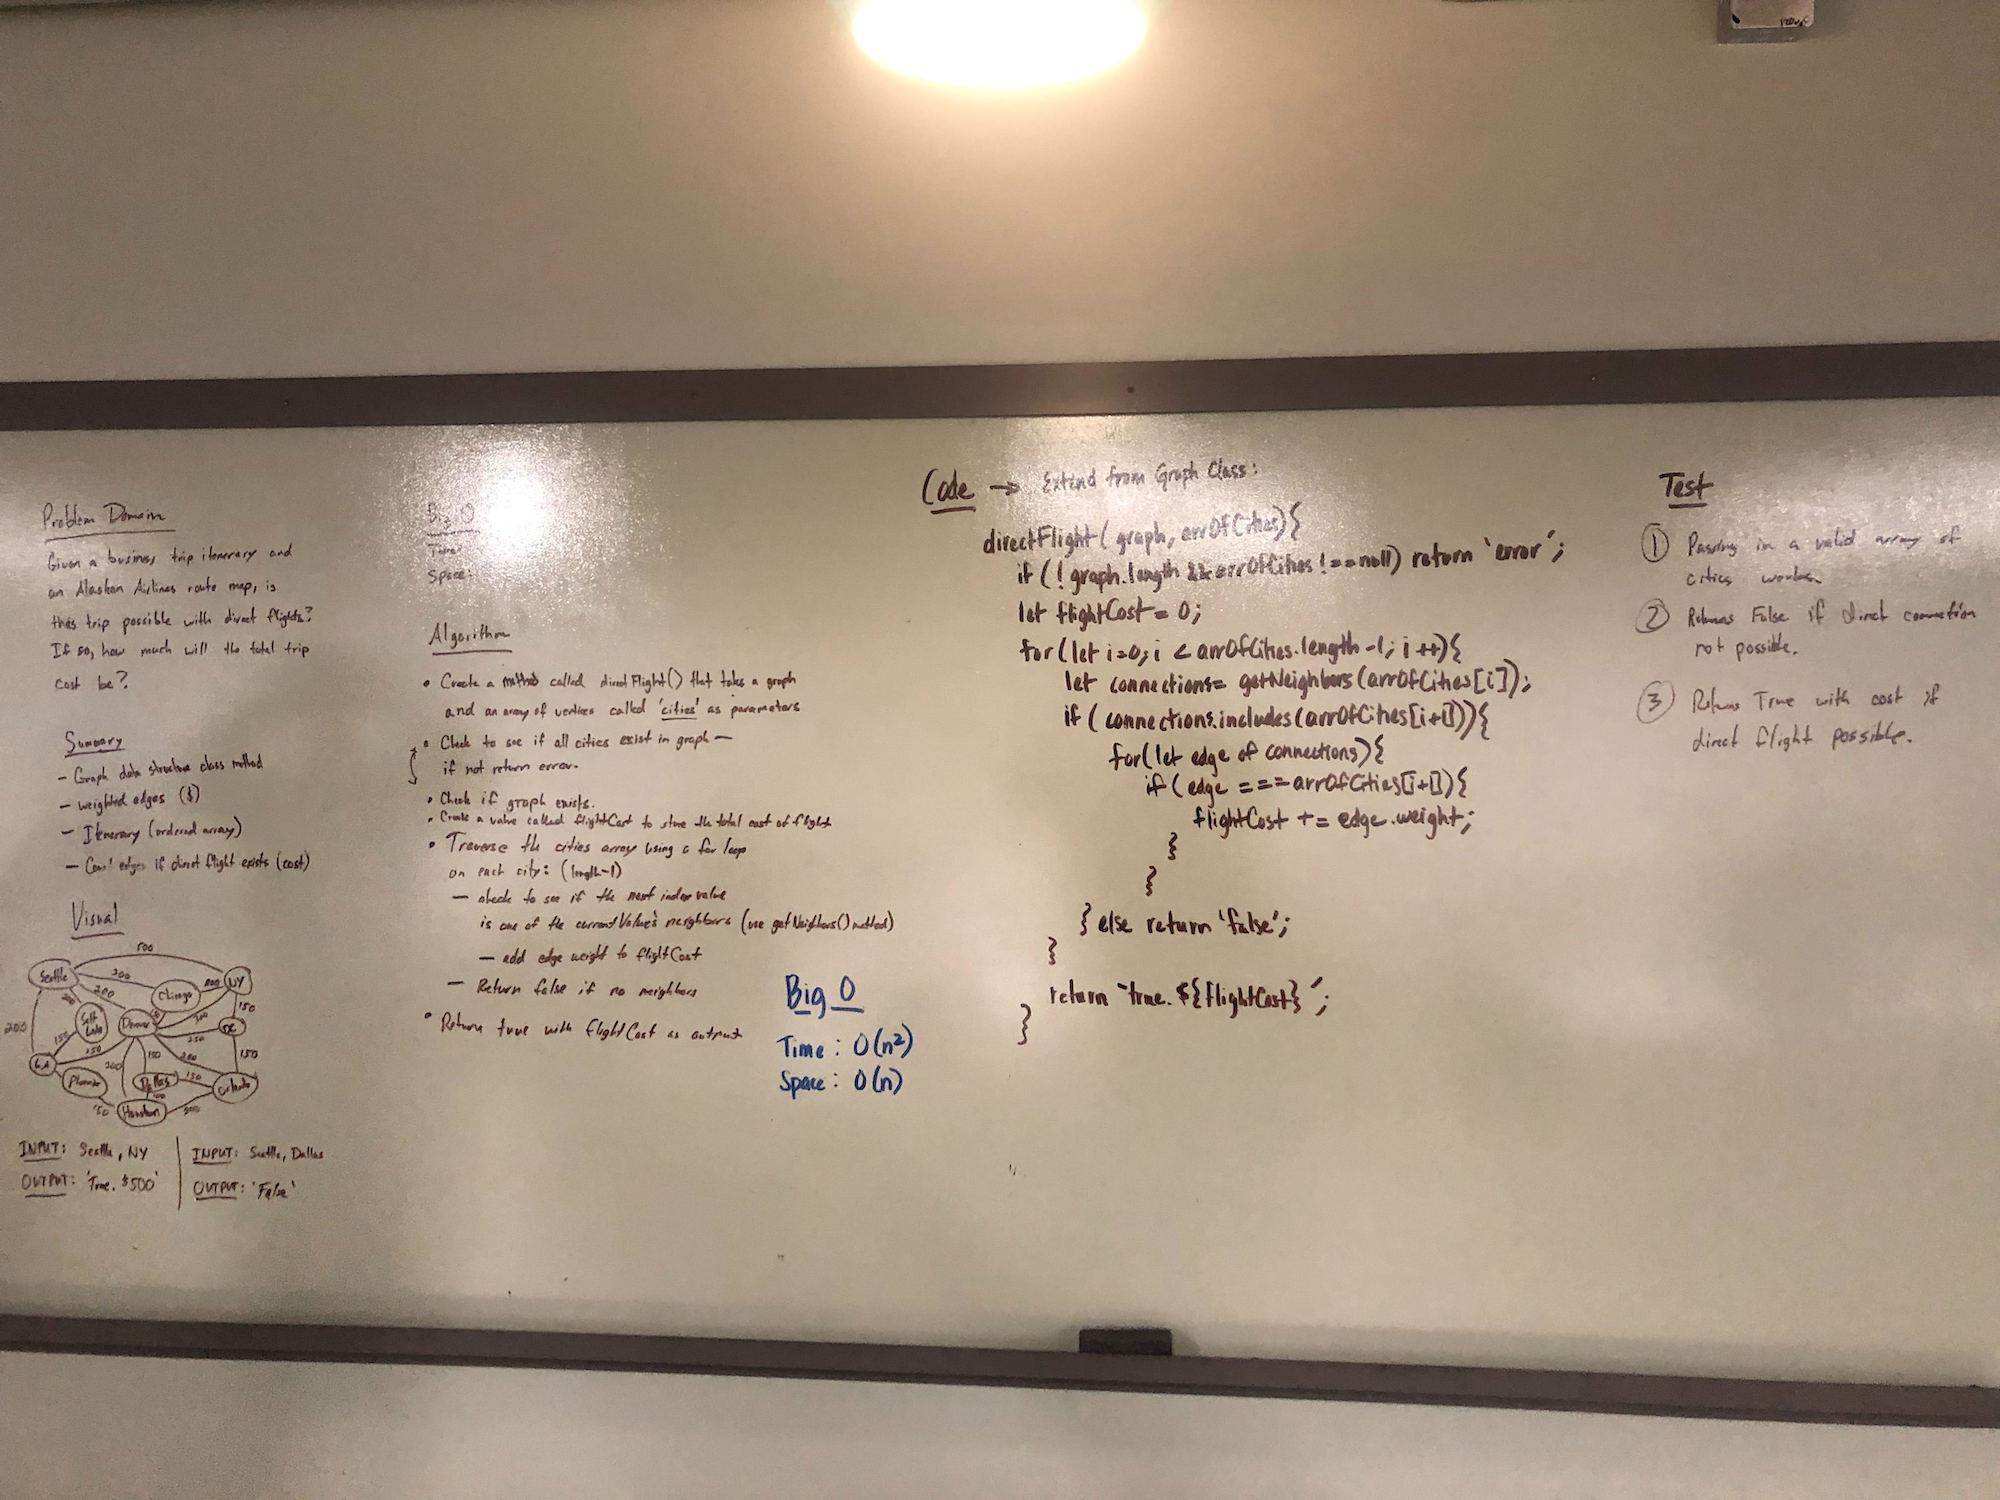 Problem Domain
Given a business trip itenerary and
an Alaskan Airlines route map, is
this trip possible with direct flights?
If so, how much will the total trip
cost be?
Summary
- Graph data structure class method
- weighted edges ($)
- Itenerary (ordered array)
- edges if direct flight exists (cost)
Visual
500
Seattle
200
Chicago
NY
200
Salt Lake
Denver
150
DC
200
150
250
250
150
LA
Phoenix
200
150
Dallas
150
Orlando
Houston
200
INPUT: Seattle, NY
OUTPUT: 'True. $500'
INPUT: Seattle, Dallas
OUTPUT: 'False'
Big O
Time:
Space:
Algorithm
• Create a method called directFlight() that takes a graph
and an array of vertices called 'cities' as parameters
• Check to see if all cities exist in graph —
if not return error.
• Check if graph exists.
• Create a value called flightCost to store the total cost of flight
• Traverse the cities array using a for loop
on each city: (length-1)
— check to see if the next index value
is one of the currentValue's neighbors (use getNeighbors() method)
— add edge weight to flightCost
— Return false if no neighbors
• Return true with flightCost as output
Big O
Time: O(n²)
Space: O(n)
Code → Extend from Graph Class:
directFlight( graph, arrOfCities){
if (! graph.length && arrOfCities !==null) return 'error';
let flightCost = 0;
for(let i=0; i < arrOfCities.length -1; i++){
let connections= getNeighbors(arrOfCities[i]);
if ( connections.includes(arrOfCities[i+1])){
for(let edge of connections){
if( edge === arrOfCities[i+1]){
flightCost += edge.weight;
}
}
} else return 'false';
}
return `true. ${flightCost} `;
}
Test
① Passing in a valid array of
cities works.
② Returns False if direct connection
not possible.
③ Returns True with cost if
direct flight possible.